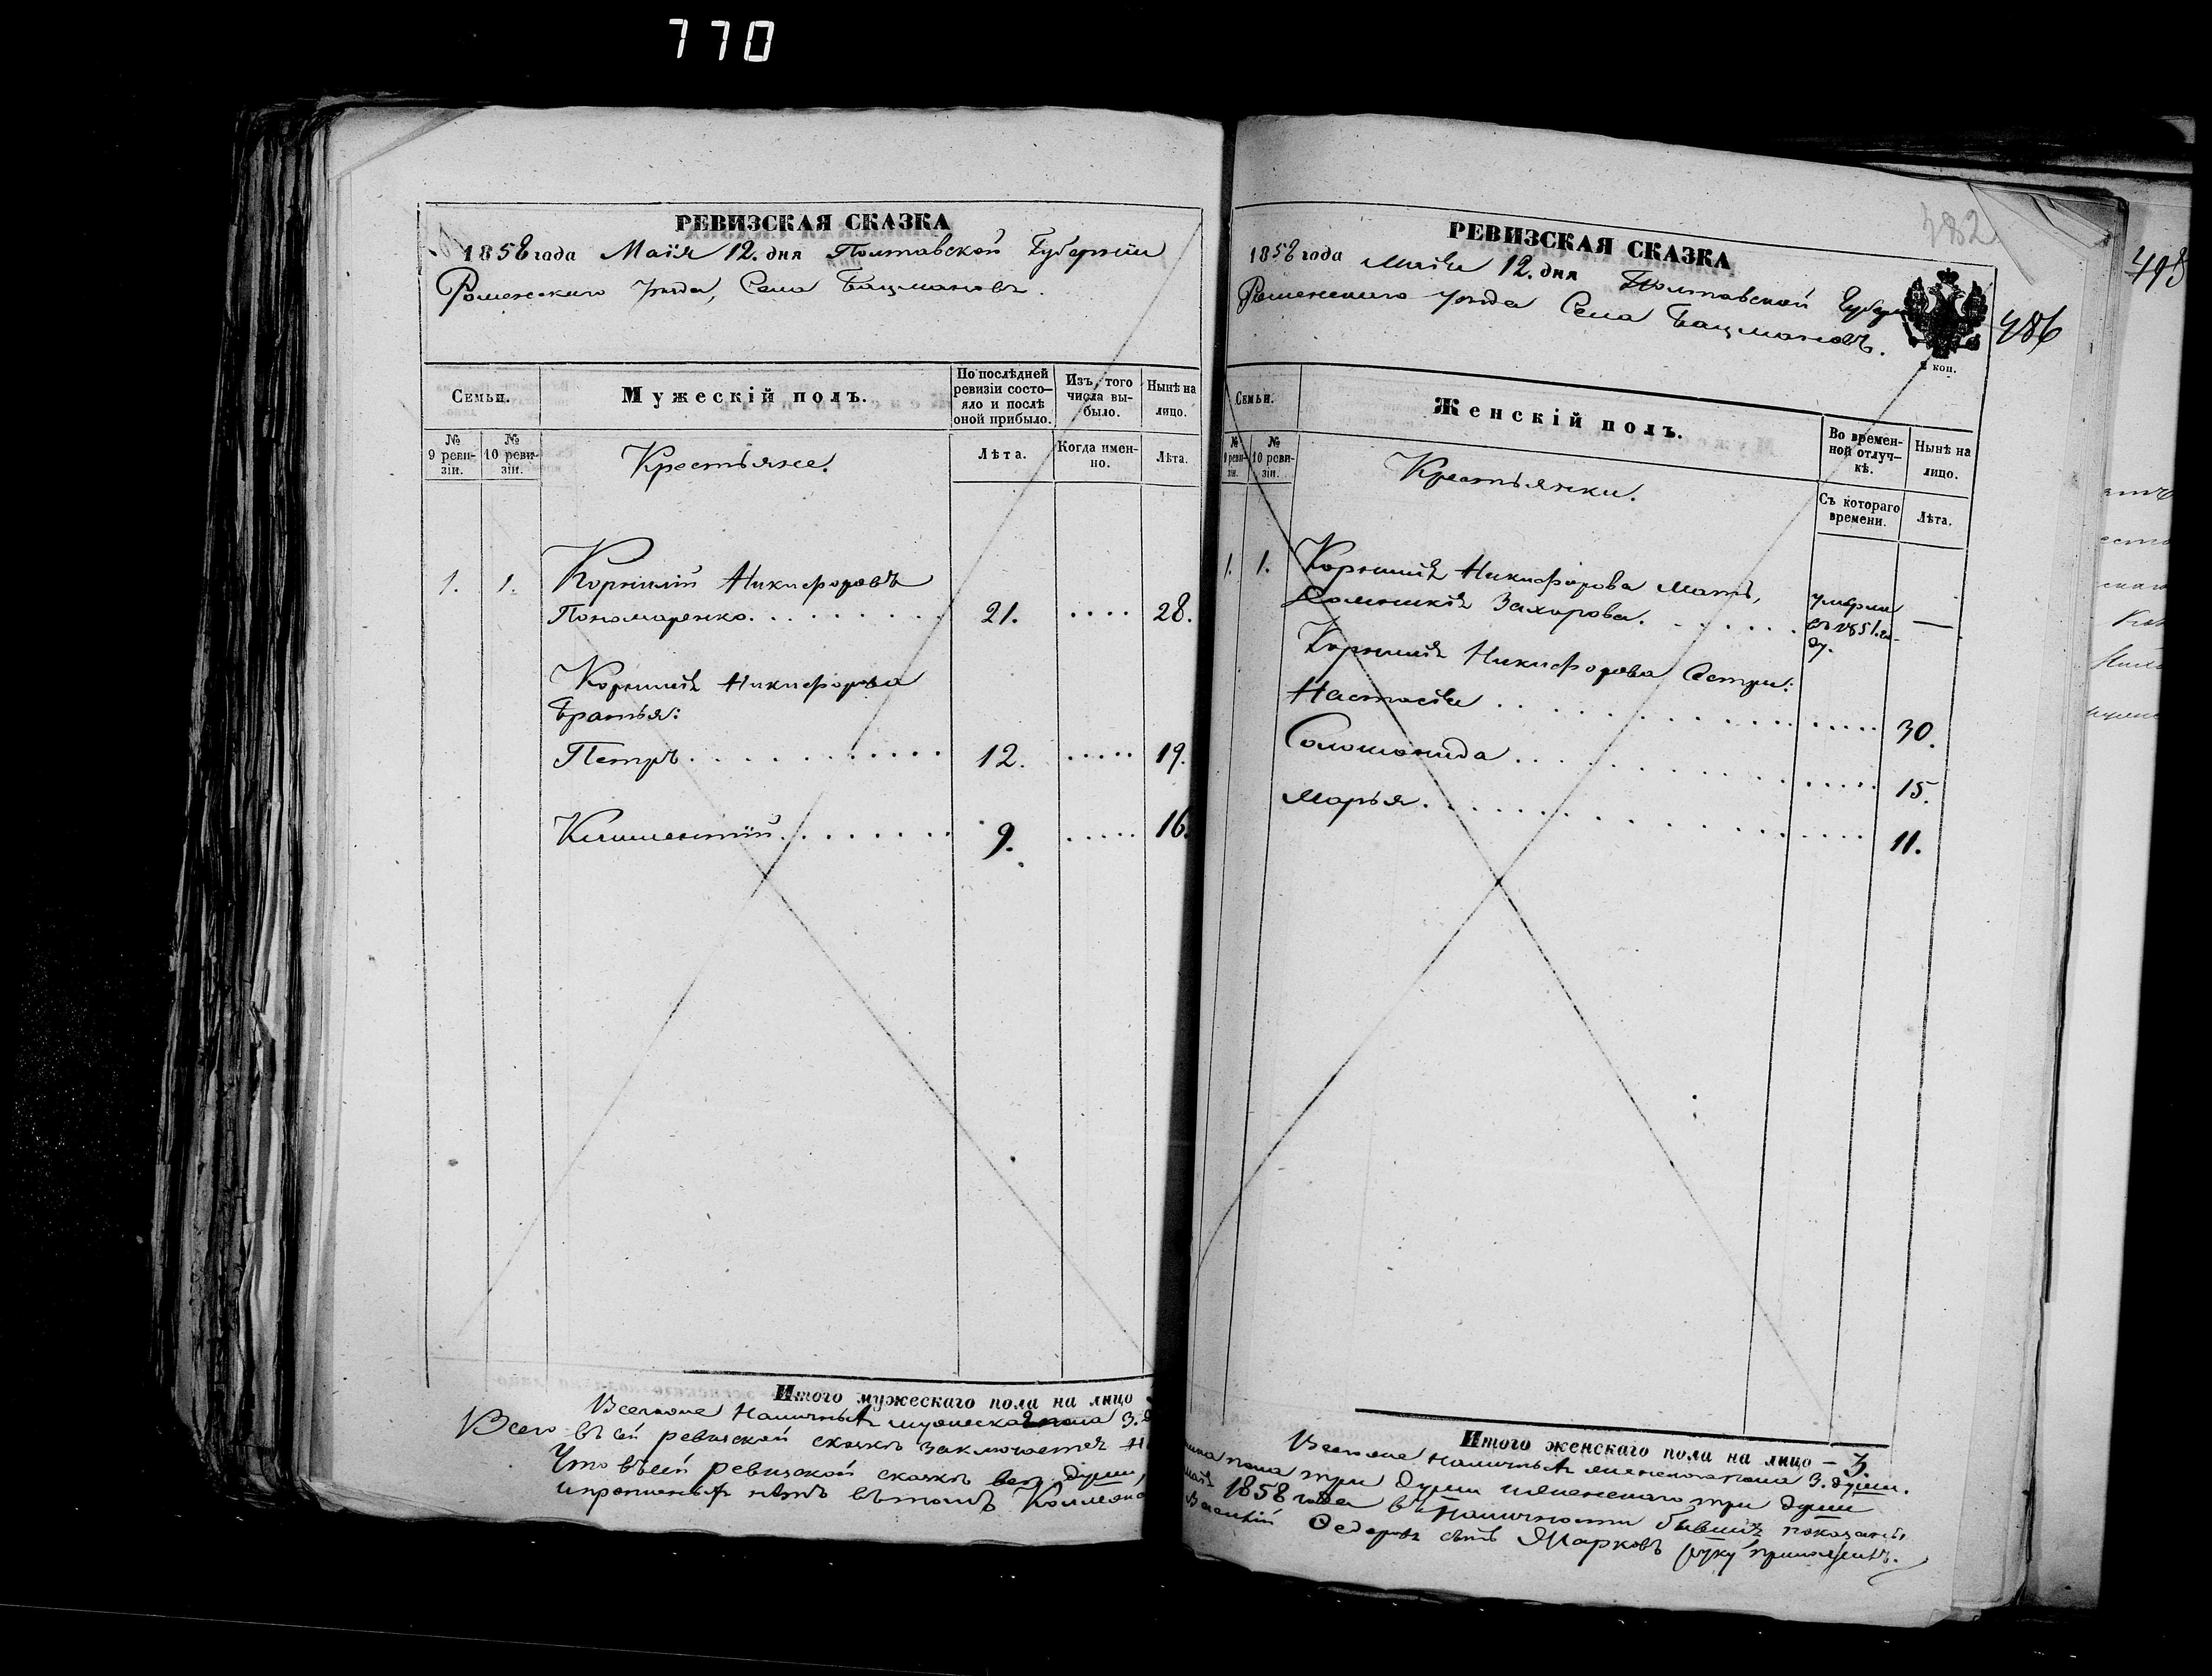 770
РЕВИЗСКАЯ СКАЗКА
1858 года Маія 12. дня Полтавской Губерніи
Роменскаго уѣзда, Села Бацмановъ.
Семьи.
Мужескій полъ.
По послѣдней ревизіи состояло и послѣ оной прибыло.
Изъ того числа выбыло.
Нынѣ на лицо.
№ 9 ревизіи.
№ 10 ревизіи.
Крестьяне.
Лѣта.
Когда именно.
Лѣта.
1. 1. Корнилій Никифоровъ
Пономаренко. 21. 28.
Корнилія Никифорова
Братья:
Петръ. 12. 19.
Климентій. 9. 16.
Итого мужескаго пола на лицо
Всего въ сей ревизской сказкѣ заключается
Что въ сей ревизской сказкѣ всѣ души,
и пропи­сныхъ нѣтъ въ томъ
РЕВИЗСКАЯ СКАЗКА
382
1858 года Маія 12. дня Полтавской Губерн
Роменскаго уѣзда Села Бацмановъ.
486
коп.
Семьи.
Женскій полъ.
Во временной отлучкѣ.
Нынѣ на лицо.
№ 9 ревизіи.
№ 10 ревизіи.
Крестьянки.
Съ котораго времени.
Лѣта.
1. 1. Корнилія Никифорова мать,
Домникія Захарова. умерла въ 1851. году. —
Корнилія Никифорова Сестры:
Настасія 30.
Соломонида 15.
Марья. 11.
Итого женскаго пола на лицо — 3.
Всего же наличныхъ женскаго пола 3. души.
пола три души женскаго три души
1858 года въ наличности бывшія показаны,
Василій Федоровъ сынъ Марковъ руку приложилъ.